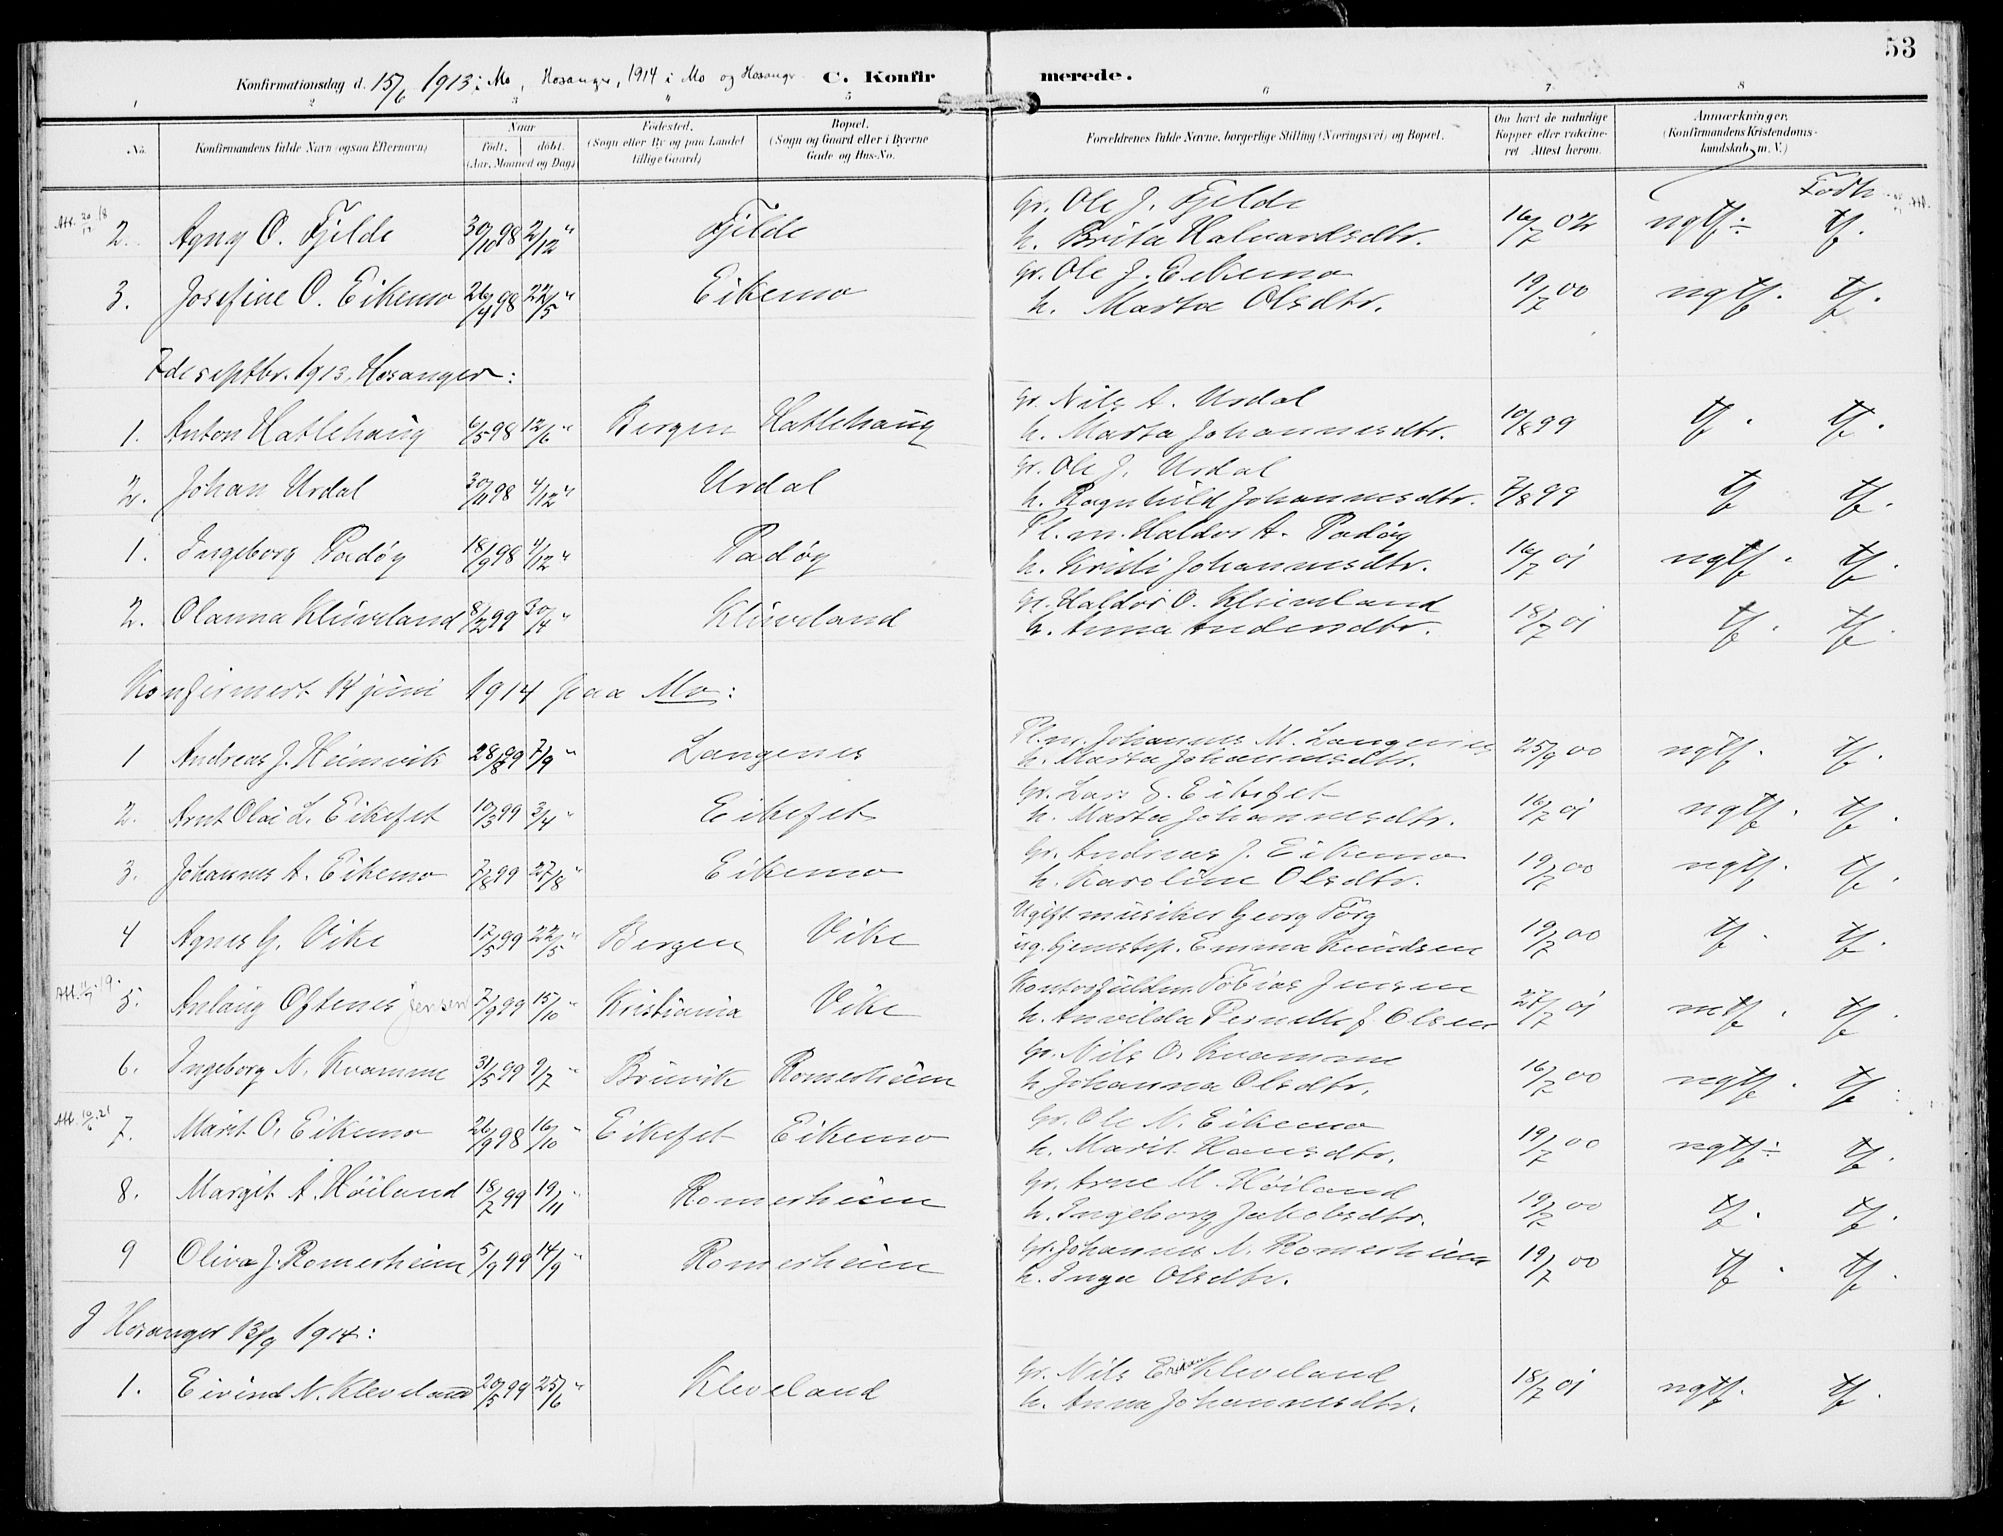 53
Konfirmationsdag d. 15/6 1913 i Mo, Hosanger, 1914 i Mo og Hosangr C. Konfirmerede.
1 2 3 4 5 6 7 8
No. Konfirmandens fulde Navn (ogsaa Efternavn) Naar født. døbt. (Aar, Maaned og Dag) Fødested. (Sogn eller By og paa Landet tillige Gaard) Bopæl. (Sogn og Gaard eller i Byerne Gade og Hus-No. Forældrenes fulde Navne, borgerlige Stilling (Næringsvei) og Bopæl. Om havt de naturlige Kopper eller vakcineret Attest herom. Anmærkninger. (Konfirmandens Kristendomskundskab m. V.)
Att. 20/12 18 2. Agny O. Fjelde 30/10 98 2/12 " Fjelde Gr. Ole J. Fjelde h. Brita Halvardsdtr. 16/7 02 ngtf ÷ tf.
3. Josefine O. Eikemo 26/4 98 22/5 " Eikemo Gr. Ole J. Eikemo h. Marta Olsdtr. 19/7 00 ngtf. tf.
7de septbr. 1913, Hosanger:
1. Anton Hatlehaug 6/5 98 12/6 " Bergen Hatlehaug Gr. Nils A. Urdal h. Marta Johannesdtr. 10/8 99 tf. tf.
2. Johan Urdal 30/11 98 4/12 " Urdal Gr. Ole J. Urdal h. Ragnhild Johannesdtr. 7/8 99 tf tf.
1. Ingeborg Padøy 18/9 98 4/12 " Padøy Pl.m. Haldor A. Padøy h. Kristi Johannesdtr. 16/7 01 ngtf. tf.
2. Olanna Kluveland 8/2 99 30/4 " Kluveland Gr. Haldor O. Kluveland h. Anna Andersdtr. 18/7 01 tf. tf.
Konfirmert 14 juni 1914 paa Mo:
1 Andreas J. Heimvik 28/8 99 7/9 " Langenes Pl.m. Johannes M. Langenes h. Marta Johannesdtr. 25/9 00 ngtf. tf.
2. Arnt Olai L. Eikefet 10/3 99 3/4 " Eikefet Gr. Lars Eikefet h. Marta Johannesdtr. 16/7 01 ngtf. tf.
3. Johannes A. Eikemo 7/8 99 27/8 " Eikemo Gr. Andreas J. Eikemo h. Karoline Olsdtr. 19/7 00 ngtf. tf.
4 Agnes G. Vike 17/5 99 22/5 " Bergen Vike Ugift musiker Georg Törg ug. tjenestep. Emma Knudsen 19/7 00 tf. tf.
5. Anlaug Oftenes Jensen 7/9 99 15/10 " Kristiania Vike Kontorfuldm. Tobias Jensen h. Anvilda Pernelle J. Olsen 27/7 01 mtf. tf.
6. Ingeborg N. Kvamme 31/5 99 9/7 " Bruvik Romerheim Gr. Nils O. Kvamme h. Johanna Olsdtr. 16/7 00 ngtf. tf.
Att. 10/6 21 7. Marit O. Eikemo 26/9 98 16/10 " Eikefet Eikemo Gr. Ole N. Eikemo h. Marit Hansdtr. 19/7 00 ngtf ÷ tf.
8. Margit A. Høiland 18/7 99 19/11 " Romerheim Gr. Arne M. Høiland h. Ingeborg Jakobsdtr. 19/7 00 tf. tf.
9 Oliva J. Romerheim 5/9 99 14/9 " Romerheim Gr. Johannes N. Romerheim h. Inga Olsdtr. 19/7 00 tf. tf.
I Hosanger 13/9 1914:
1. Eivind N. Kleveland 20/5 99 25/6 " Kleveland Gr. Nils Eriksen Kleveland h. Anna Johannesdtr. 18/7 01 ngtf. tf.